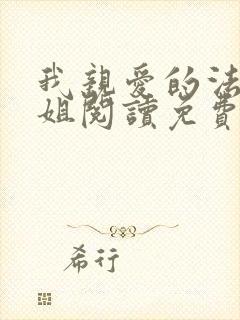 我親愛的法
姐閱讀免費
希行